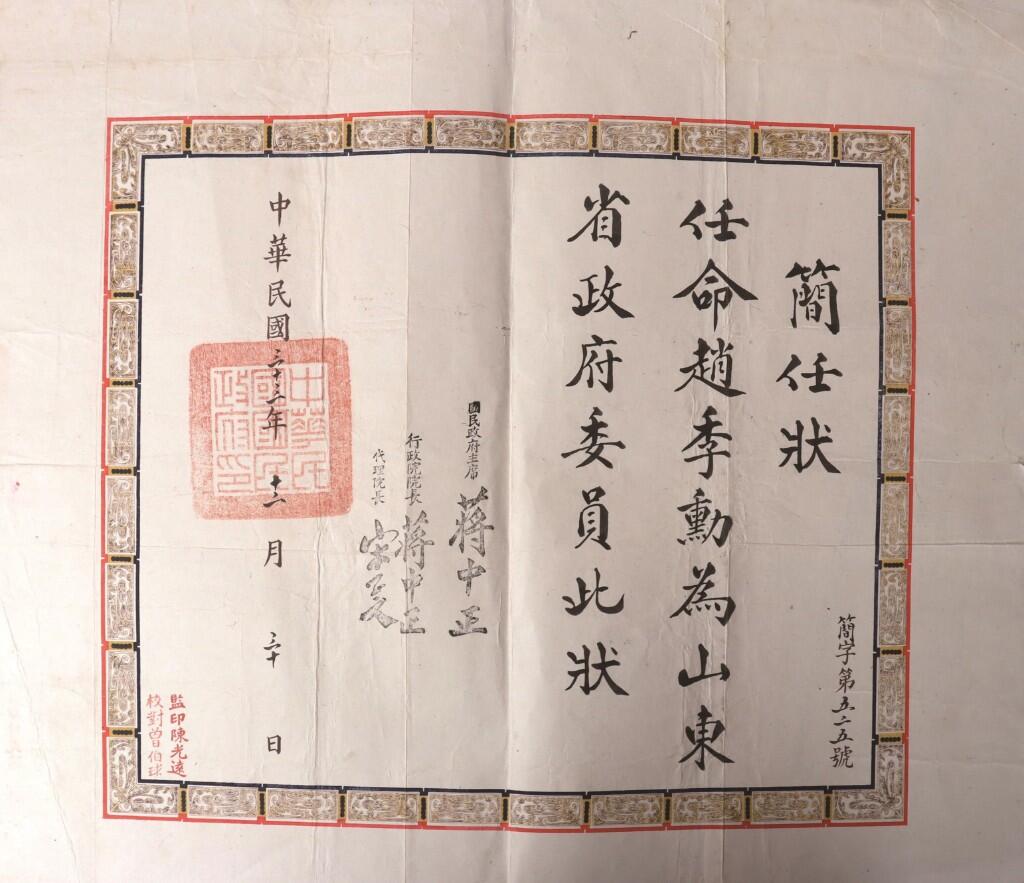 簡任狀
簡字第五二五號
任命趙季勳為山東
省政府委員此狀
國民政府主席 蔣中正
行政院院長 蔣中正
代理院長 宋子文
中華民國三十三年十二月三十日
中華民國國民政府印
監印陳光遠
校對曾伯球